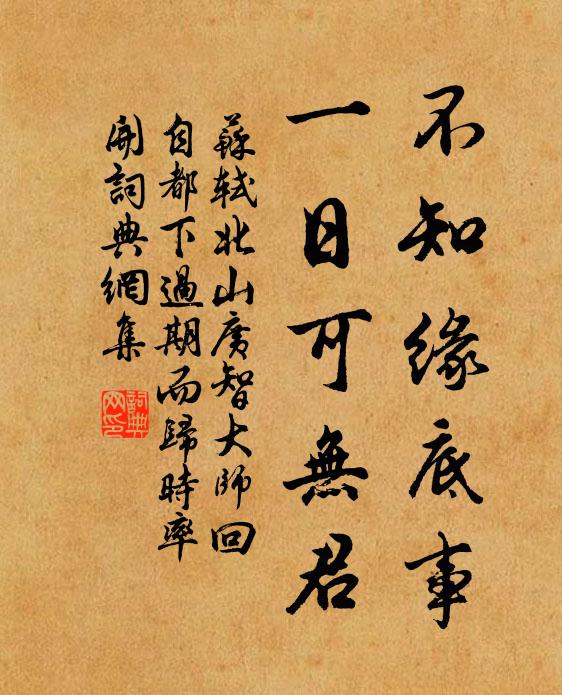 不知緣底事
一日可無君
蘇軾北山廣智大師回
自都下過期而歸時率
開詞典網集
詞典
网印